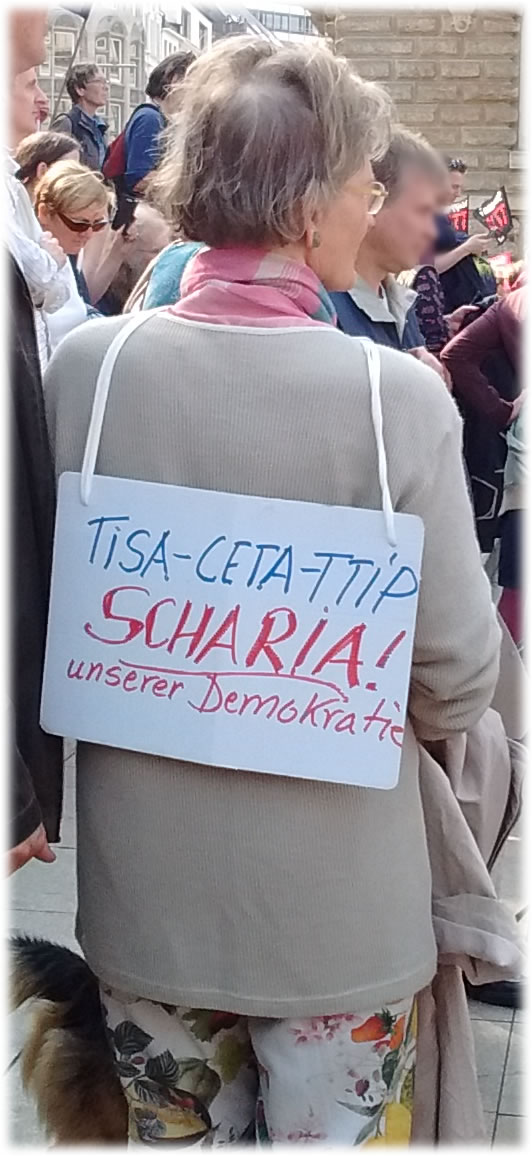 TiSA-CETA-TTiP
SCHARiA!
unserer Demokratie